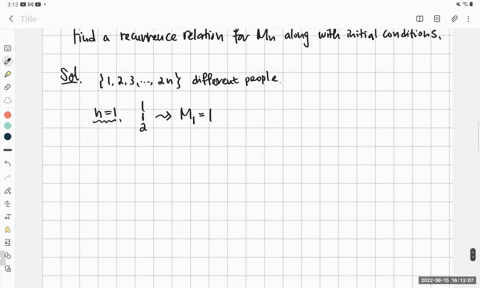 3:13
Title
Find a recurrence relation for Mn along with initial conditions.
Sol. {1, 2, 3, ..., 2n} different people.
n=1, 1 | 2 ⇝ M₁ = 1
2022-06-15 16:13:07